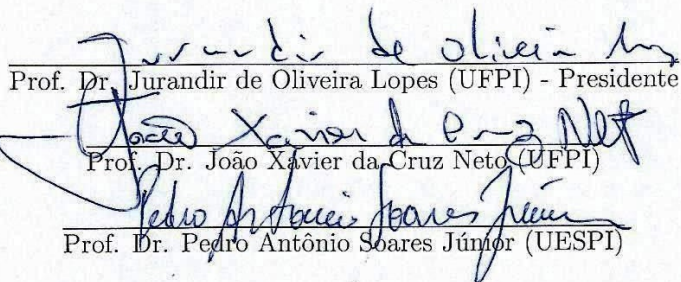 Jurandir de Oliveira
Prof. Dr. Jurandir de Oliveira Lopes (UFPI) - Presidente
João Xavier da Cruz Neto
Prof. Dr. João Xavier da Cruz Neto (UFPI)
Pedro Antonio Soares Júnior
Prof. Dr. Pedro Antônio Soares Júnior (UESPI)